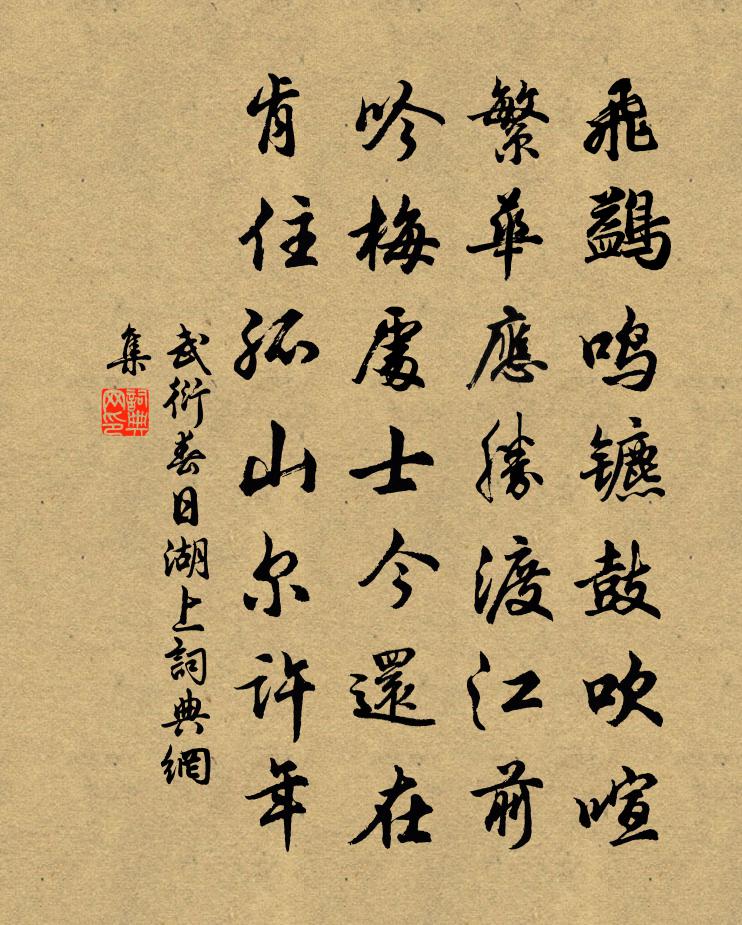 飛鷁鳴镳鼓吹喧
繁華應勝渡江前
吟梅處士今還在
肯住孤山尔許年
武衍春日湖上詞典網
集
詞典網印